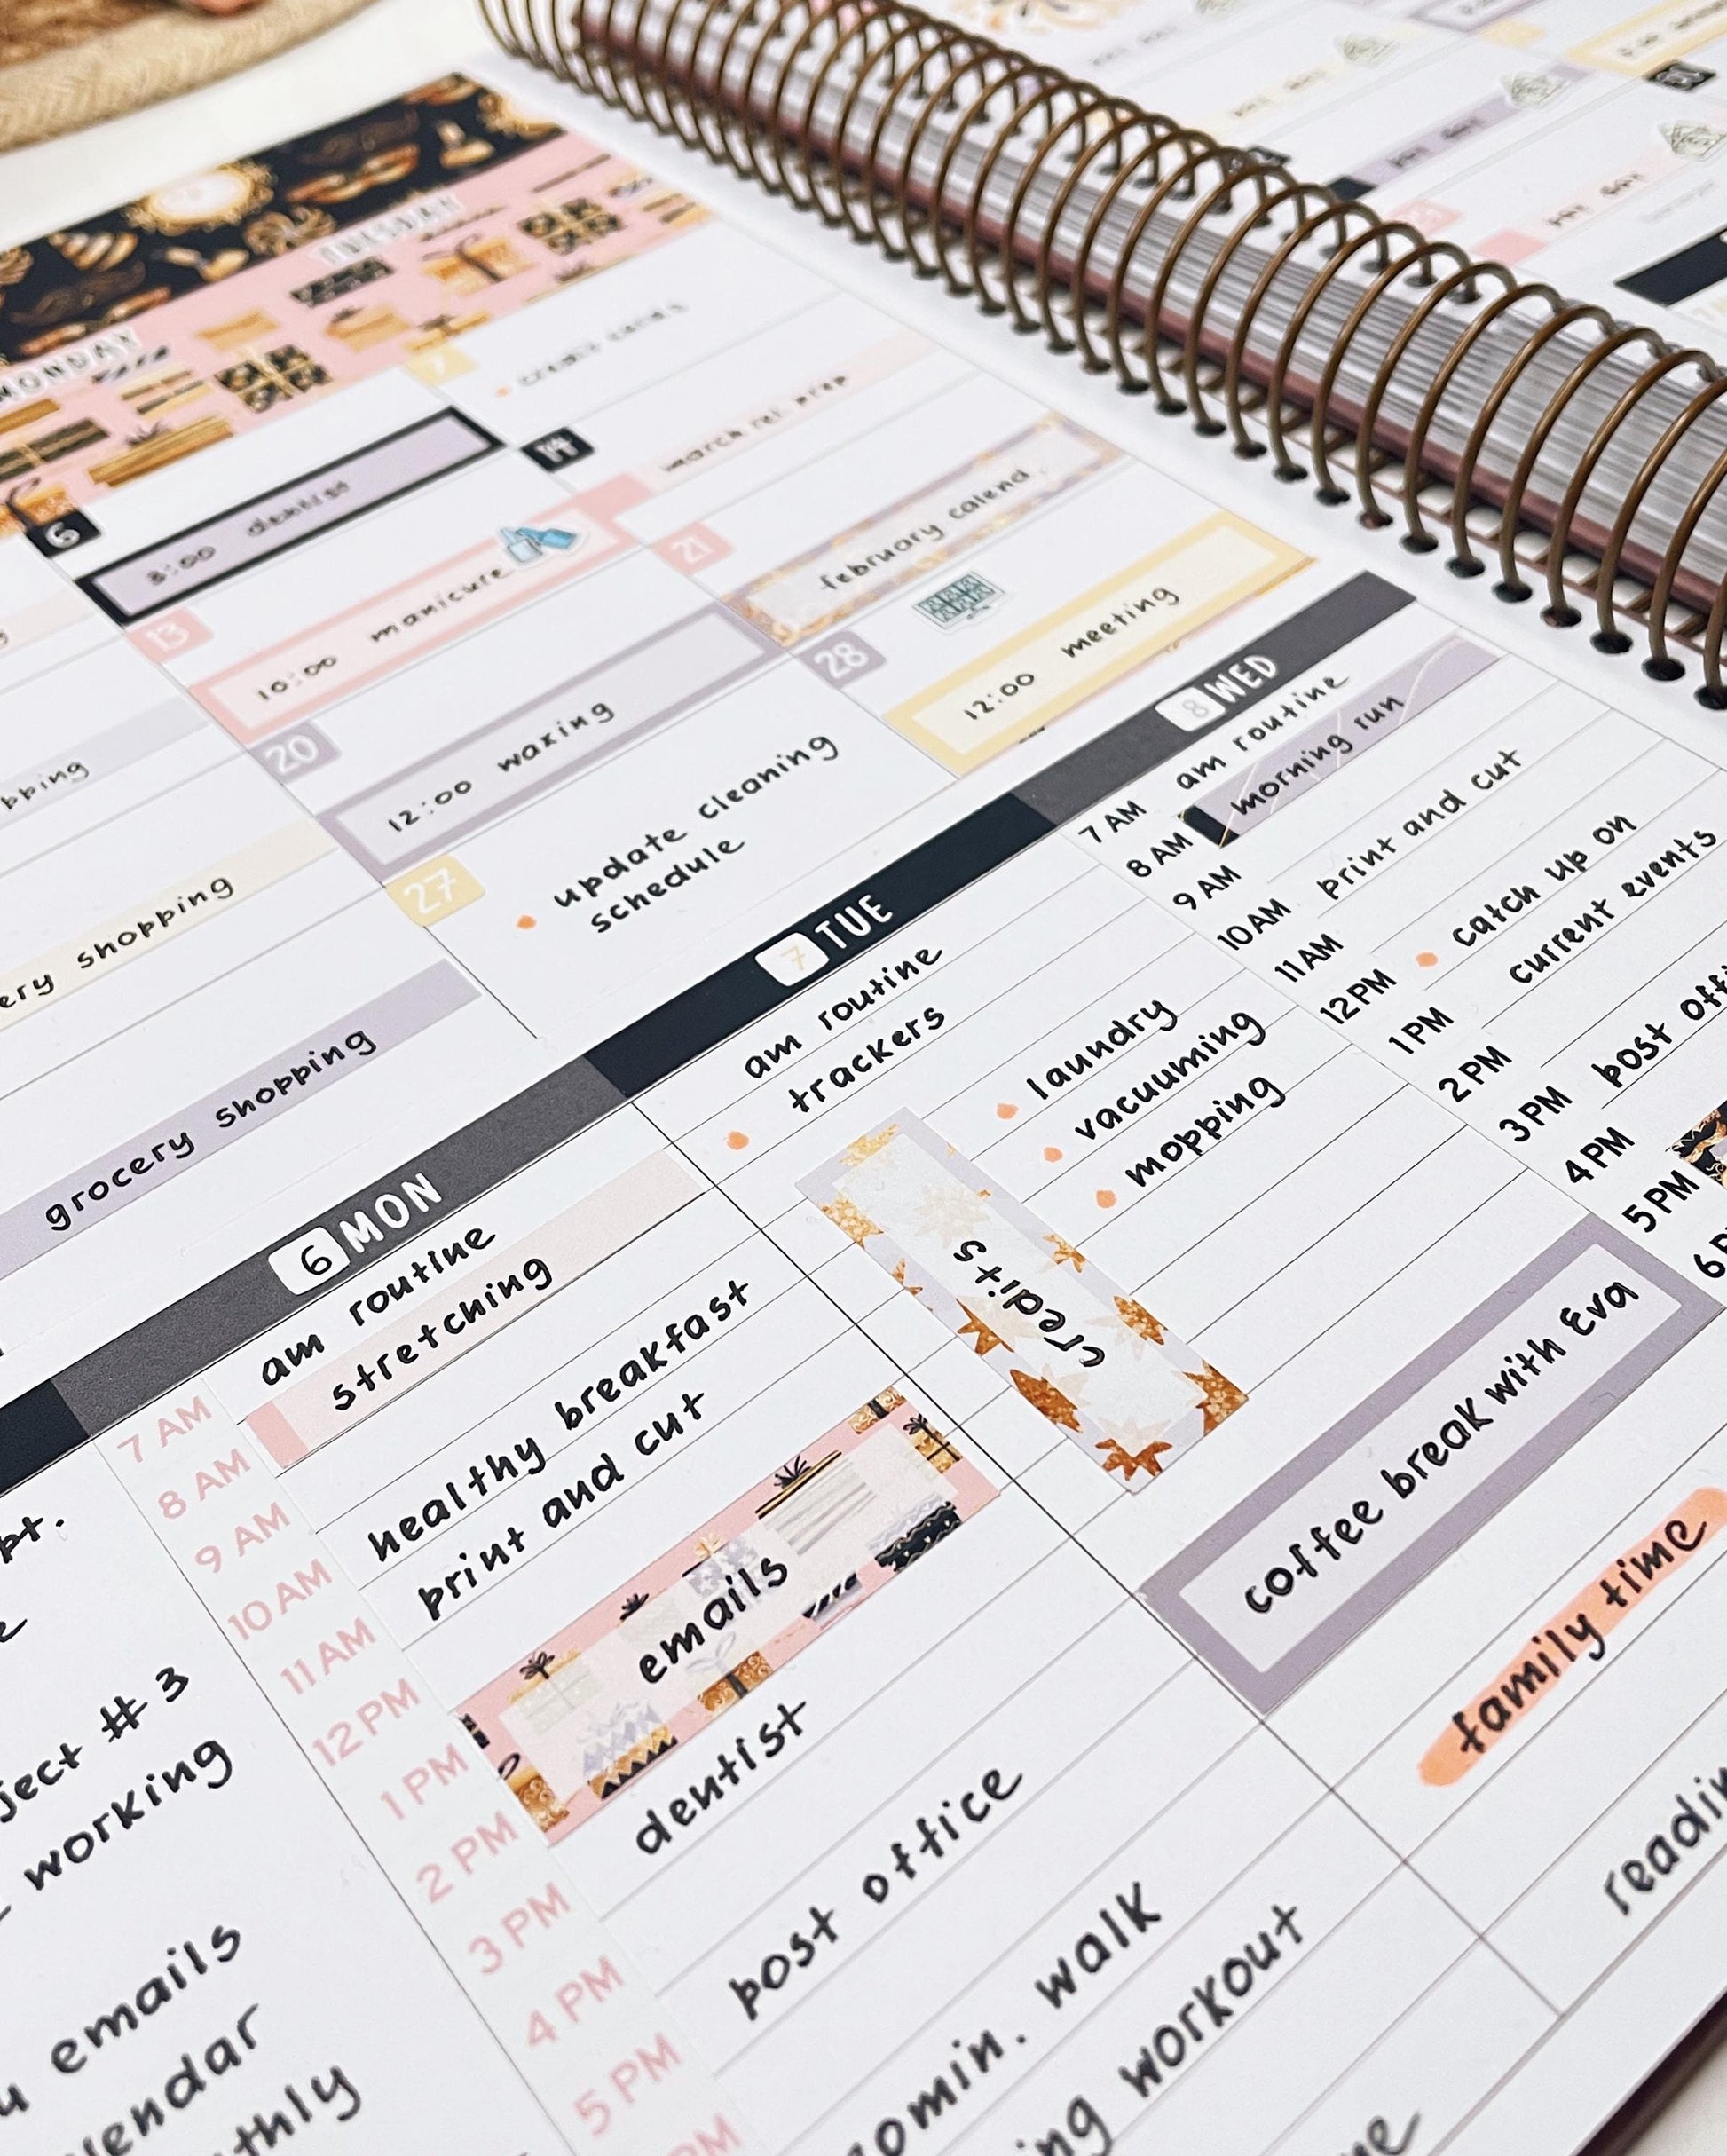 MONDAY
TUESDAY
6
8:00 dentist
13
10:00 manicure
20
12:00 waxing
27
update cleaning
schedule
7
credit cards
14
21
february calend.
28
12:00 meeting
shopping
grocery shopping
6 MON
am routine
stretching
healthy breakfast
print and cut
emails
dentist
post office
walk
workout
7 AM
8 AM
9 AM
10 AM
11 AM
12 PM
1 PM
2 PM
3 PM
4 PM
5 PM
7 TUE
am routine
trackers
laundry
vacuuming
mopping
credits
coffee break with Eva
family time
8 WED
am routine
morning run
print and cut
catch up on
current events
post
7 AM
8 AM
9 AM
10 AM
11 AM
12 PM
1 PM
2 PM
3 PM
4 PM
5 PM
# 3
working
emails